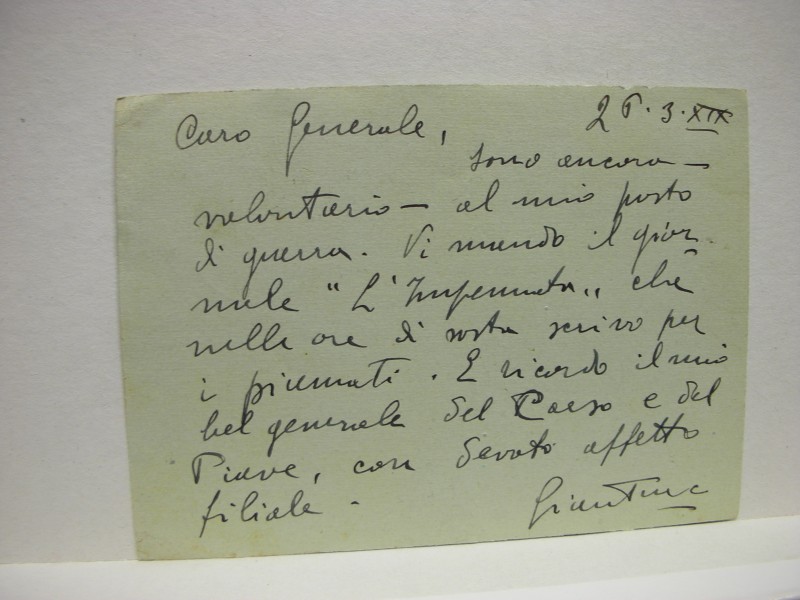 Caro Generale, 26.3.XIX
sono ancora —
volontario — al mio posto
di guerra. Vi mando il gior-
nale "L'Impennata" che
nelle ore di sosta scrivo per
i piumati. E ricordo il mio
bel generale del Carso e del
Piave, con devoto affetto
filiale.